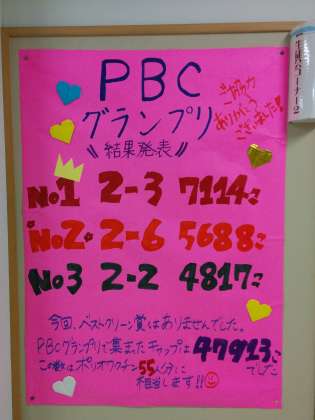 PBC
グランプリ
ご協力
ありがとう
ございました!
《結果発表》
No1 2-3 7114コ
No2 2-6 5688コ
No3 2-2 4817コ
今回、ベストクリーン賞はありませんでした。
PBCグランプリで集まったキャップは47913コでした
この数はポリオワクチン55人分に
相当します!!